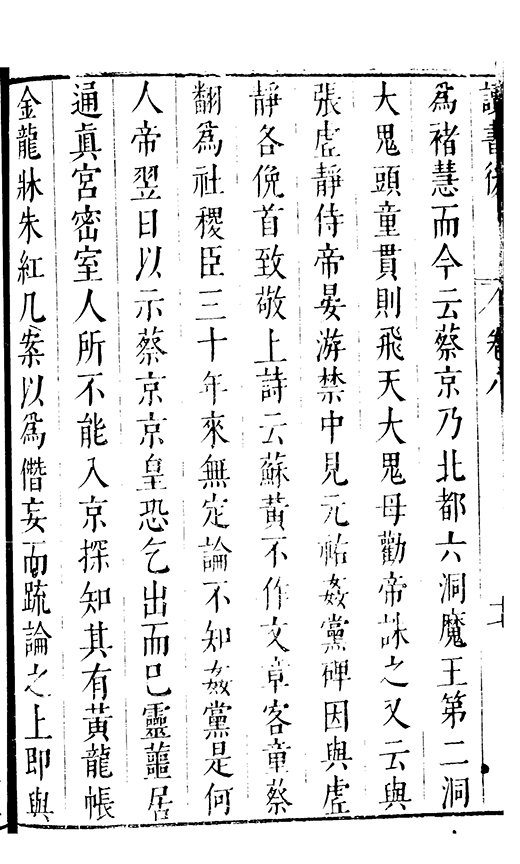 讀書後 卷八
為褚慧而今云蔡京乃北都六洞魔王第二洞
大鬼頭童貫則飛天大鬼母勸帝誅之又云與
張虛靜侍帝晏游禁中見元祐姦黨碑因與虛
靜各俛首致敬上詩云蘇黃不作文章客童蔡
翻為社稷臣三十年來無定論不知姦黨是何
人帝翌日以示蔡京京皇恐乞出而已靈蘁居
通真宮密室人所不能入京探知其有黃龍帳
金龍牀朱紅几案以為僭妄而疏論之上即與